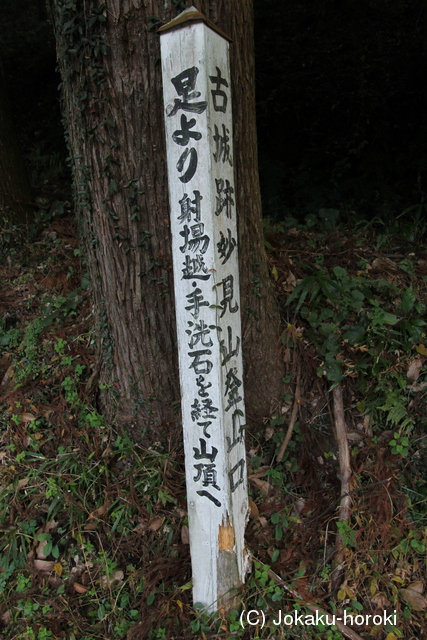 古城跡妙見山登山口
是より射場越・手洗石を経て山頂へ
(C) Jokaku-horoki